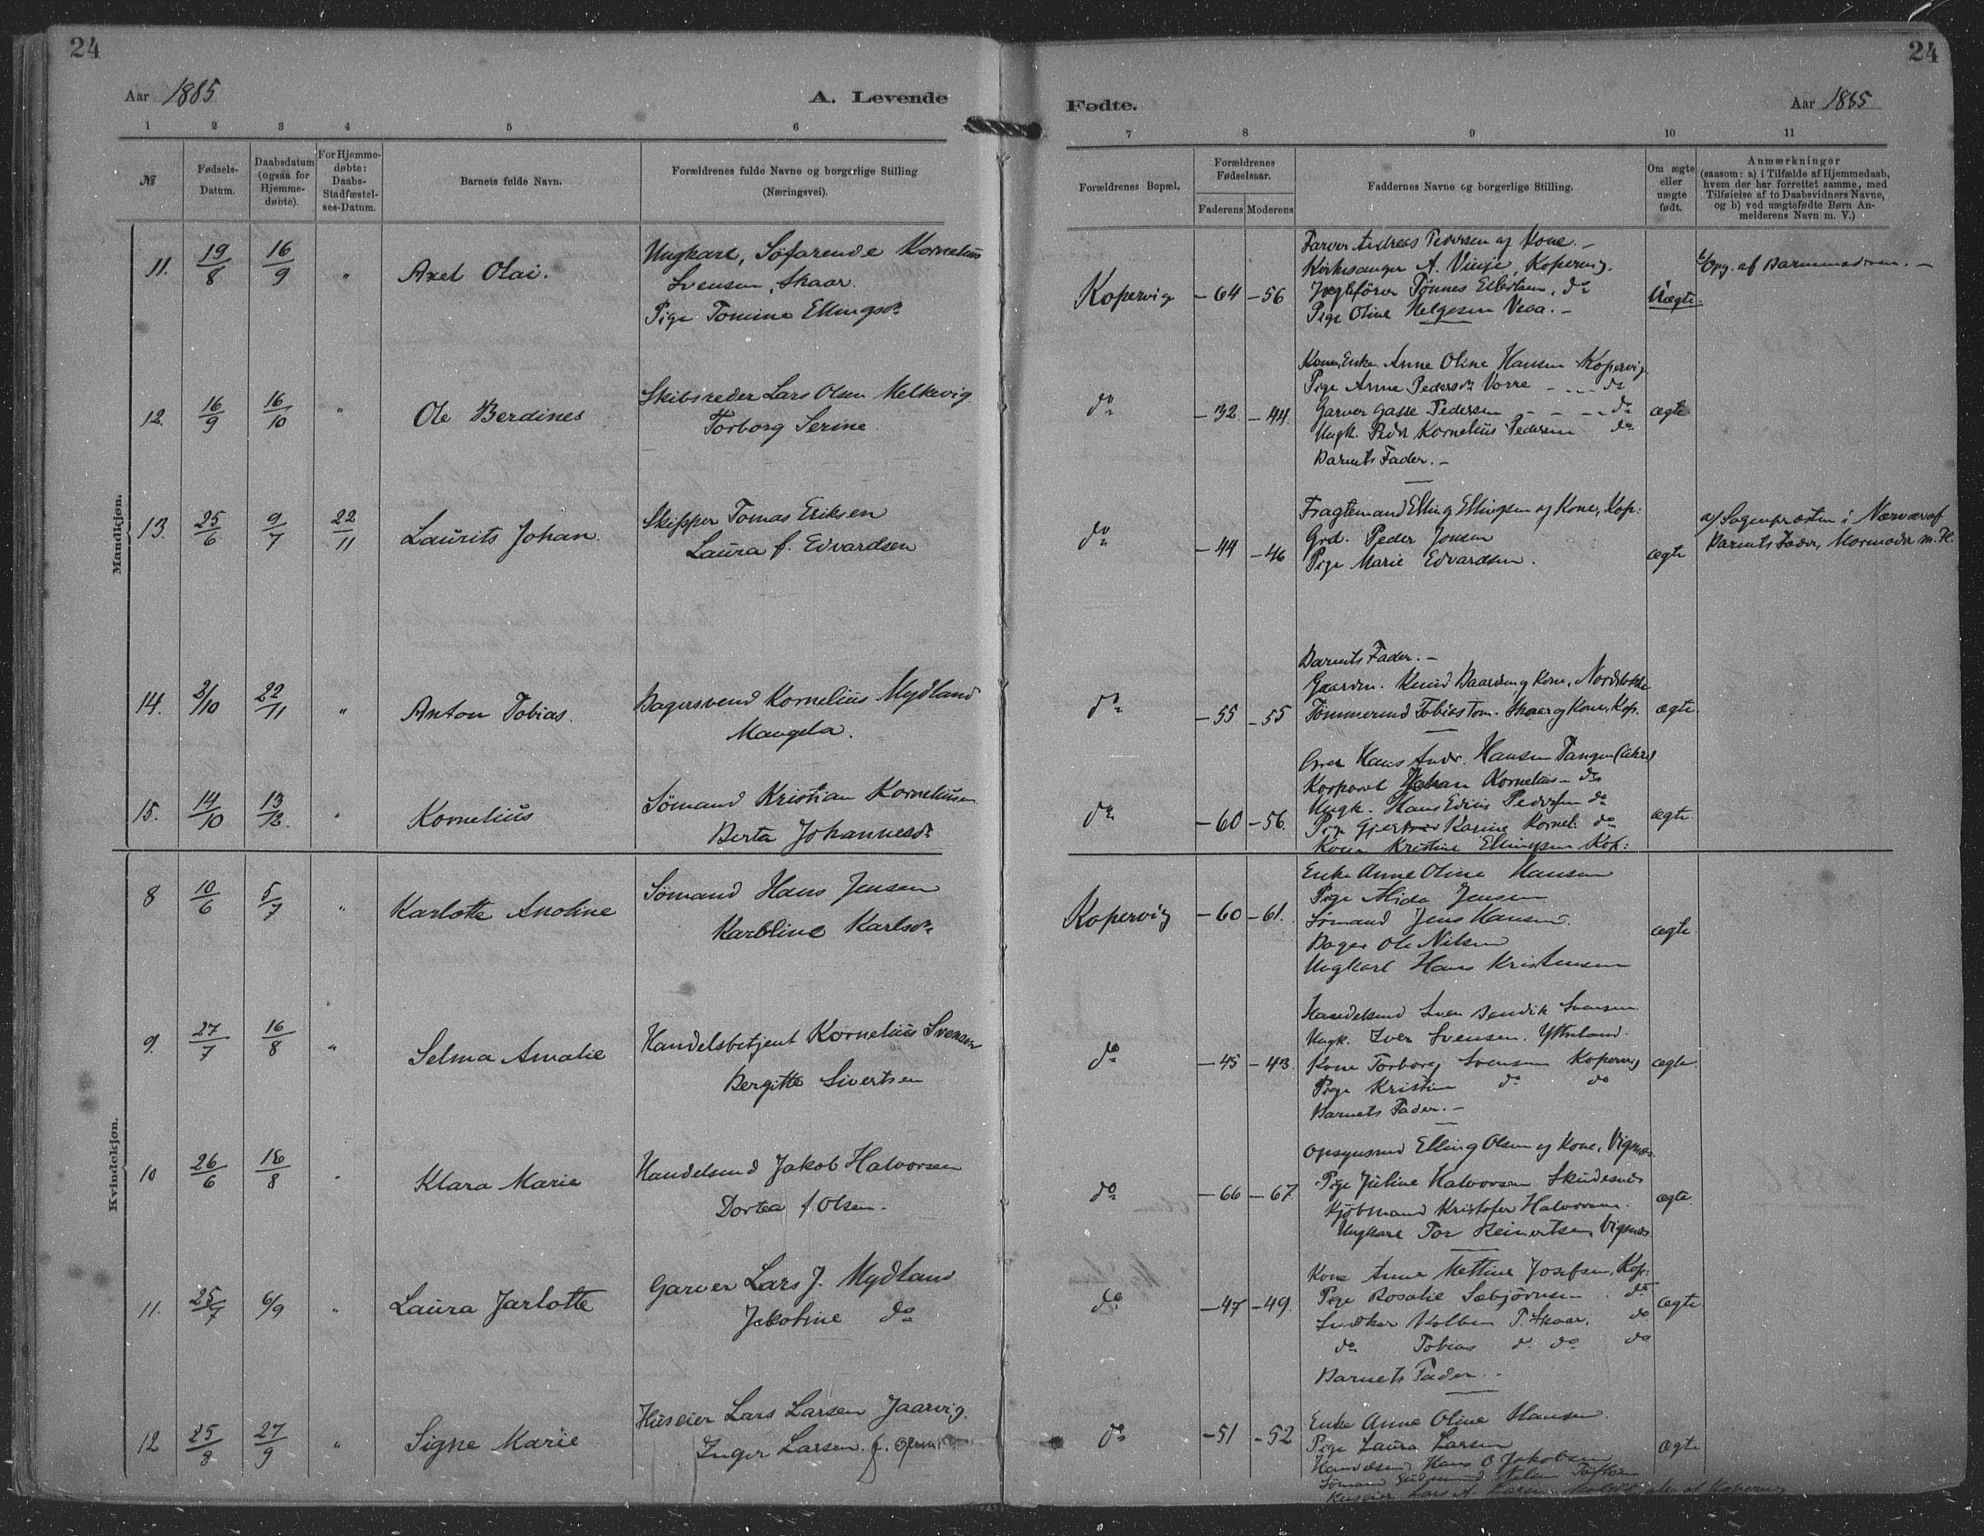 24
Aar 1885
A. Levende
1 2 3 4 5 6
№
Fødsels-Datum.
Daabsdatum (ogsaa for Hjemmedøbte).
For Hjemmedøbte: Daabs-Stadfæstelses-Datum.
Barnets fulde Navn.
Forældrenes fulde Navne og borgerlige Stilling
(Næringsvei).
Mandkjøn.
11. 19/8 16/9 " Axel Olai.
Ungkarl, Søfarende Kornelius
Svensen, Skaar.
Pige Tomine Ellingsdr
12. 16/9 16/10 " Ole Berdines
Skibsreder Lars Olsen Melkevig
Torborg Serine
13. 25/6 9/7 22/11 Laurits Johan.
Skipper Tomas Eriksen
Laura f. Edvardsen
14. 2/10 22/11 " Anton Tobias.
Bagersvend Kornelius Mydland
Mangela.
15. 14/10 13/12. " Kornelius
Sømand Kristian Korneliussen
Berta Johannesdr
Kvindekjøn.
8 10/6 5/7 " Karlotte Anoline
Sømand Hans Jensen
Karoline Karlsdr
9. 27/7 16/8 " Selma Amalie
Handelsbetjent Kornelius Svensen
Bergitte Sivertsen
10 26/6 16/8 " Klara Marie
Handelsmd Jakob Halvorsen
Dortea f. Olsen.
11. 25/7 6/9 " Laura Jarlotte
Garver Lars J. Mydland
Jakobine do
12 25/8 27/9 " Signe Marie
Huseier Lars Larsen Jaarvig.
Inger Larsen f. Olsen
24
Fødte.
Aar 1885
7 8 9 10 11
Forældrenes Bopæl.
Forældrenes Fødselsaar.
Faderens Moderens
Faddernes Navne og borgerlige Stilling.
Om ægte eller uægte født.
Anmærkninger
(saasom: a) i Tilfælde af Hjemmedaab,
hvem der har forrettet samme, med
Tilføielse af to Daabsvidners Navne,
og b) ved uægtefødte Børn Anmelderens Navn m. V.)
Kopervig -64 -56
Farver Andreas Pedersen og Kone.-
Kirkesanger A. Vinje, Kopervig.
Tønnes do
Pige Oline Helgesen Veaa.-
Uægte.
b/ Opg. af Barnemoderen.-
do -32 -44.
Enke Anne Oline Hansen Kopervig
Pige Anne Pedersdr Vorre - - - do
Garver Gasse Pedersen - - - do
Ungk. Peder Kornelius Pedersen do
Barnets Fader.-
ægte
do -44 -46
Fragtemand Elling Ellingsen og Kone, Kop:
Grd. Peder Jonsen
Pige Marie Edvardsen.
ægte
a/ Sogepræsten i Nærvær af
Barnets Fader, Mormoder m. Fl.
do -55 -55
Barnets Fader.-
Gaardm. Knud Baardsen og Kone, Nordstokke
Tømmermd Tobias Tom. Skaar og Kone, Kop.
ægte.
do -60 -56.
Hans Andr. Hansen Tangen
Korporal Johan Kornelius- do
Ungk. Hans Edius Pedersen do
Pige Gjertrud Karine Kornel. do
Kone Kristine Ellingsen Kop:
ægte.
Kopervig -60 -61.
Enke Anne Oline Hansen
Pige Alida Jensen
Sømand Jens Hansen
Bager Ole Nilsen
Ungkarl Hans Kristensen
ægte.
do -45 -43.
Handelsmd Sven Bendik Svensen
Ungk. Iver Svensen. Ytreland.
Kone Torborg Svensen Kopervig
Pige Kristine do do
Barnets Fader.-
ægte.
do -66 -67.
Opsynsmd Elling Olsen og Kone, Vigsnæs
Pige Juline Halvorsen Skudesnæs
Kjøbmand Kristofer Halvorsen.
Ungkarl Tor Reinertsen, Vigsnæs
ægte.
do -47 -49.
Kone Anne Mettine Josefsen, Kop:
Pige Rosalie Sæbjørnsen . do
Kolben T. Skaar. do
do Tobias d. do do
Barnets Fader.-
ægte
do -51 -52
Enke Anne Oline Hansen.
Pige Laura Larsen
Hans O Jakobsen
Sømand Gudmund Nilsen
Huseier Lars A. Larsen af Kopervig
ægte